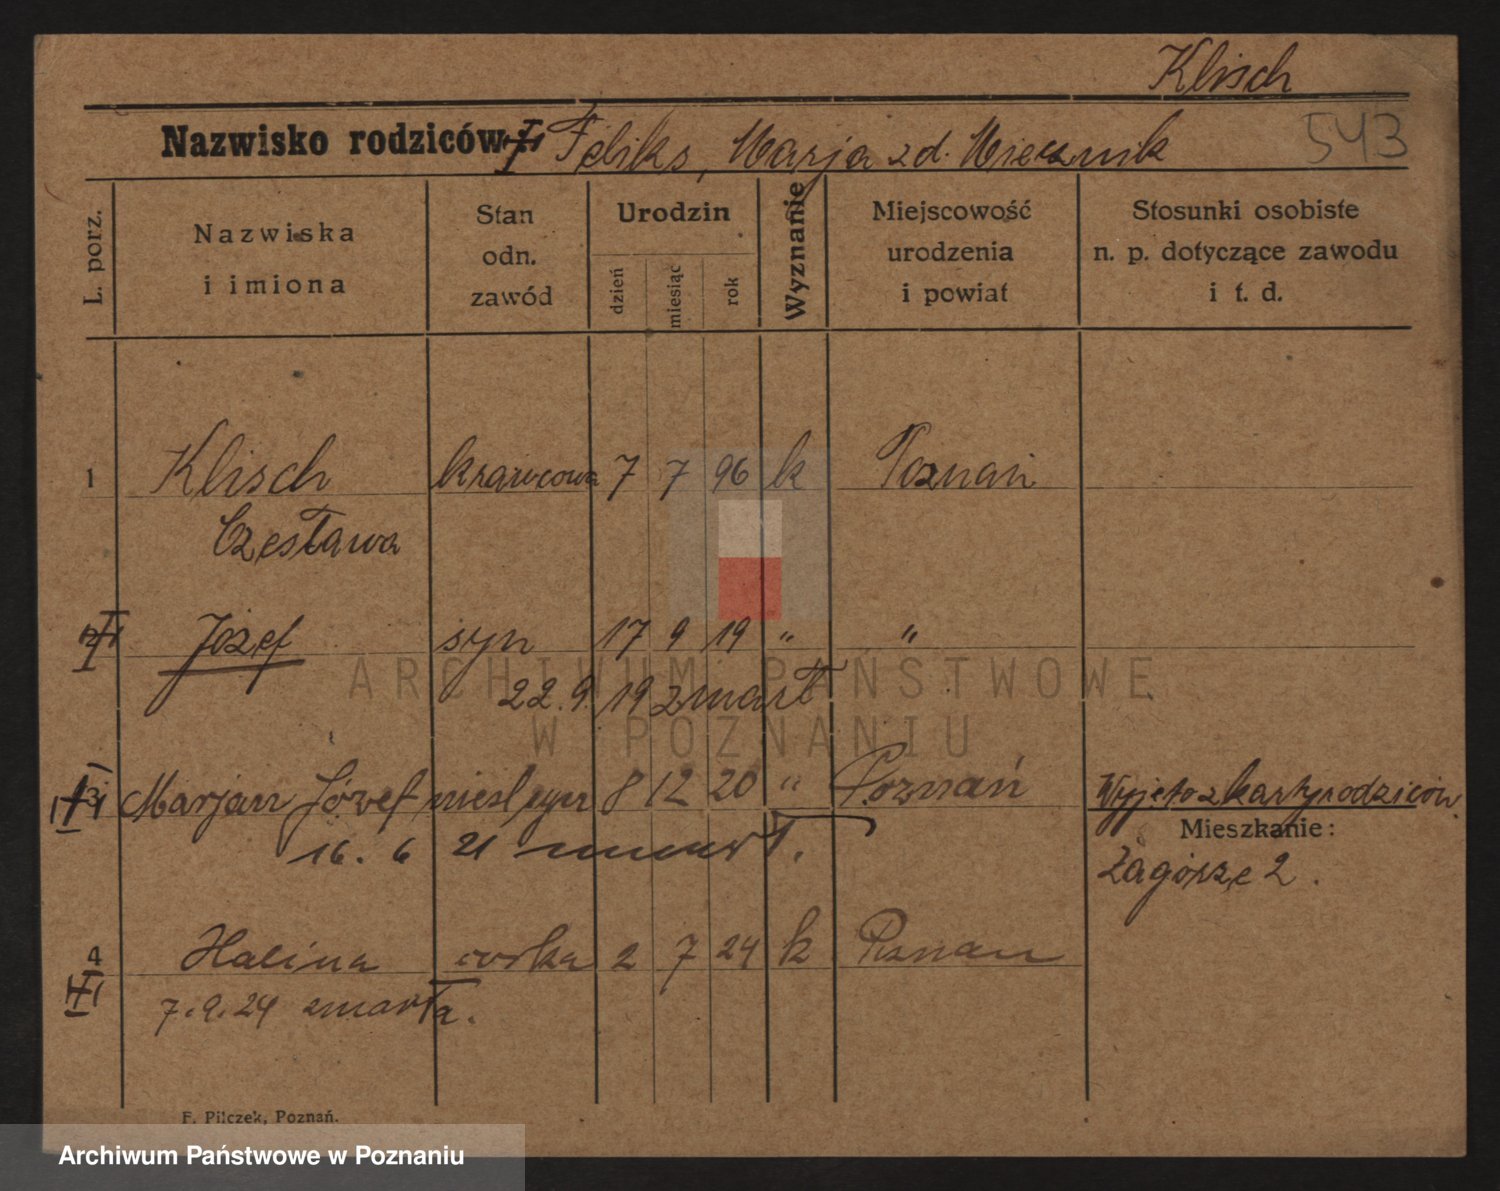 Klisch
Nazwisko rodziców Feliks, Marja zd. Miecznik 543
L. porz.
Nazwiska
i imiona
Stan
odn.
zawód
Urodzin
dzień
miesiąc
rok
Wyznanie
Miejscowość
urodzenia
i powiat
Stosunki osobiste
n. p. dotyczące zawodu
i t. d.
1 Klisch krawcowa 7 7 96 k Poznań
Czesława
2 Józef syn 17 9 19 " "
22.9.19 zmarł
3 Marjan Józef syn 8 12 20 " Poznań Wyjęto z karty rodziców
16. 6 21 zmarł.
Mieszkanie:
Zagórze 2.
4 Halina córka 2 7 24 k Poznań
7.9.24 zmarła.
F. Pilczek, Poznań.
ARCHIWUM PAŃSTWOWE
W POZNANIU
Archiwum Państwowe w Poznaniu